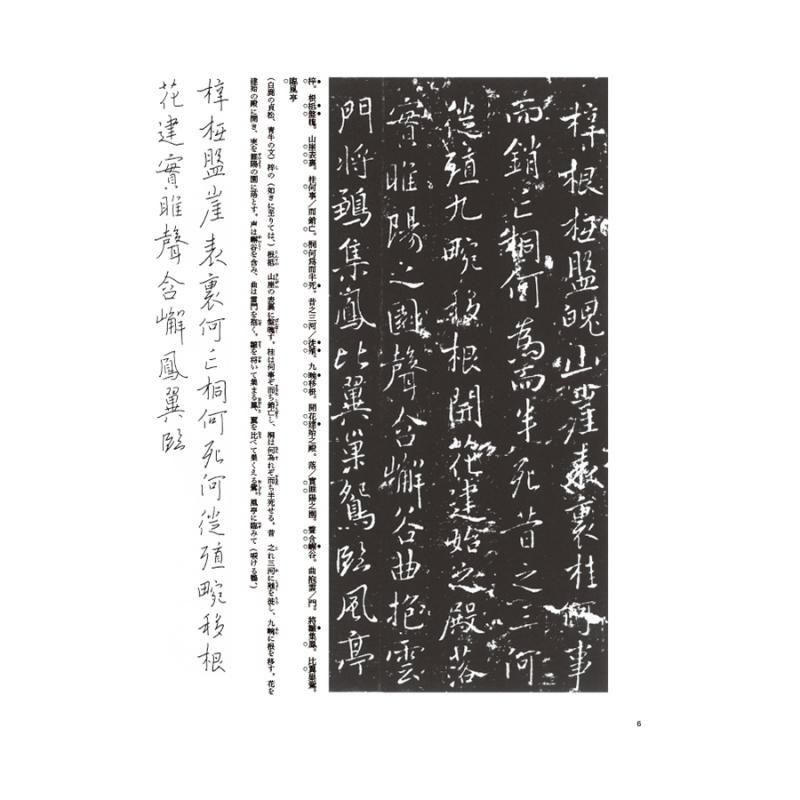 梓根柢盤魄山崖表裏桂何事
而銷亡桐何為而半死昔之三河
徙殖九畹移根開花建始之殿落
實睢陽之園聲含嶰谷曲抱雲
門將鶵集鳳比翼巢鴛臨風亭
梓。根柢盤魄。山崖表裏。桂何事／而銷亡。桐何爲而半死。昔之三河／徙殖。九畹移根。開花建始之殿。落／實睢陽之園。聲含嶰谷。曲抱雲／門。將鶵集鳳。比翼巢鴛。
臨風亭
（白鹿の貞松、青牛の文）梓の（如きに至りては、）根柢 山崖の表裏に盤魄す。桂は何事ぞ而ち銷亡し、桐は何為れぞ而ち半死せる。昔 之れ三河に殖を徙し、九畹に根を移す。花を
建始の殿に開き、実を睢陽の園に落とす。声は嶰谷を含み、曲は雲門を抱く。鶵を将いて集まる鳳、翼を比べて巣くえる鴛。風亭に臨みて（唳ける鶴、）
梓柢盤崖表裏何亡桐何死何徙殖畹移根
花建實睢聲含嶰鳳翼臨
6